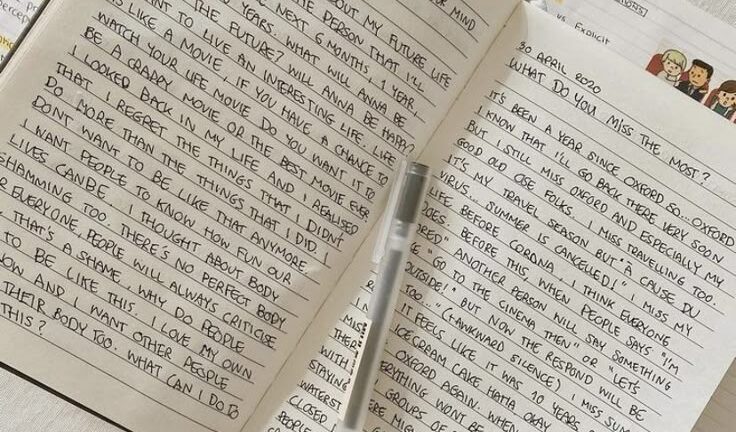 BOUT MY FUTURE LIFE
THE PERSON THAT I'LL
NEXT 6 MONTHS, 1 YEAR
YEARS. WHAT WILL ANNA BE
THE FUTURE? WILL ANNA BE HAPPY
NT TO LIVE AN INTERESTING LIFE. LIFE
IS LIKE A MOVIE, IF YOU HAVE A CHANCE TO
WATCH YOUR LIFE MOVIE DO YOU WANT IT TO
BE A CRAPPY MOVIE OR THE BEST MOVIE EVER
I LOOKED BACK IN MY LIFE AND I REALISED
THAT I REGRET THE THINGS THAT I DIDN'T
DO MORE THAN THE THINGS THAT I DID. I
DONT WANT TO BE LIKE THAT ANYMORE.
I WANT PEOPLE TO KNOW HOW FUN OUR
LIVES CAN BE. I THOUGHT ABOUT BODY
SHAMMING TOO. THERE'S NO PERFECT BODY
R EVERYONE, PEOPLE WILL ALWAYS CRITICISE
THAT'S A SHAME, WHY DO PEOPLE
TO BE LIKE THIS. I LOVE MY OWN
NOW AND I WANT OTHER PEOPLE
THEIR BODY TOO. WHAT CAN I DO TO
THIS?
vs Explicit
30 APRIL 2020
WHAT DO YOU MISS THE MOST?
IT'S BEEN A YEAR SINCE OXFORD SO... OXFORD
I KNOW THAT I'LL GO BACK THERE VERY SOON
BUT I STILL MISS OXFORD AND ESPECIALLY MY
GOOD OLD CSE FOLKS. I MISS TRAVELLING TOO.
IT'S MY TRAVEL SEASON BUT "À CAUSE DU
VIRUS... SUMMER IS CANCELLED!" I MISS MY
LIFE BEFORE CORONA. I THINK EVERYONE
DOES. BEFORE THIS WHEN PEOPLE SAYS "I'M
BORED" ANOTHER PERSON WILL SAY SOMETHING
"GO TO THE CINEMA THEN" OR "LET'S
OUTSIDE!" BUT NOW THE RESPOND WILL BE
TOO." (*AWKWARD SILENCE) I MISS SUM
IT FEELS LIKE IT WAS 10 YEARS
ICE CREAM CAKE HAHA OKAY
OXFORD AGAIN. WHEN
WITH EVERYTHING WONT BE
STAYING GROUPS OF
CLOSED ERE MIGH
PEOPLE